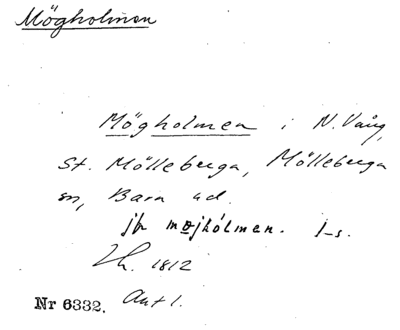 Mögholmen
Mögholmen i N. Vång,
St. Mölleberga, Mölleberga
sn, Bara hd.
jfr møjhólmen. I-s.
Lh. 1812
Nr 6332. Akt 1.